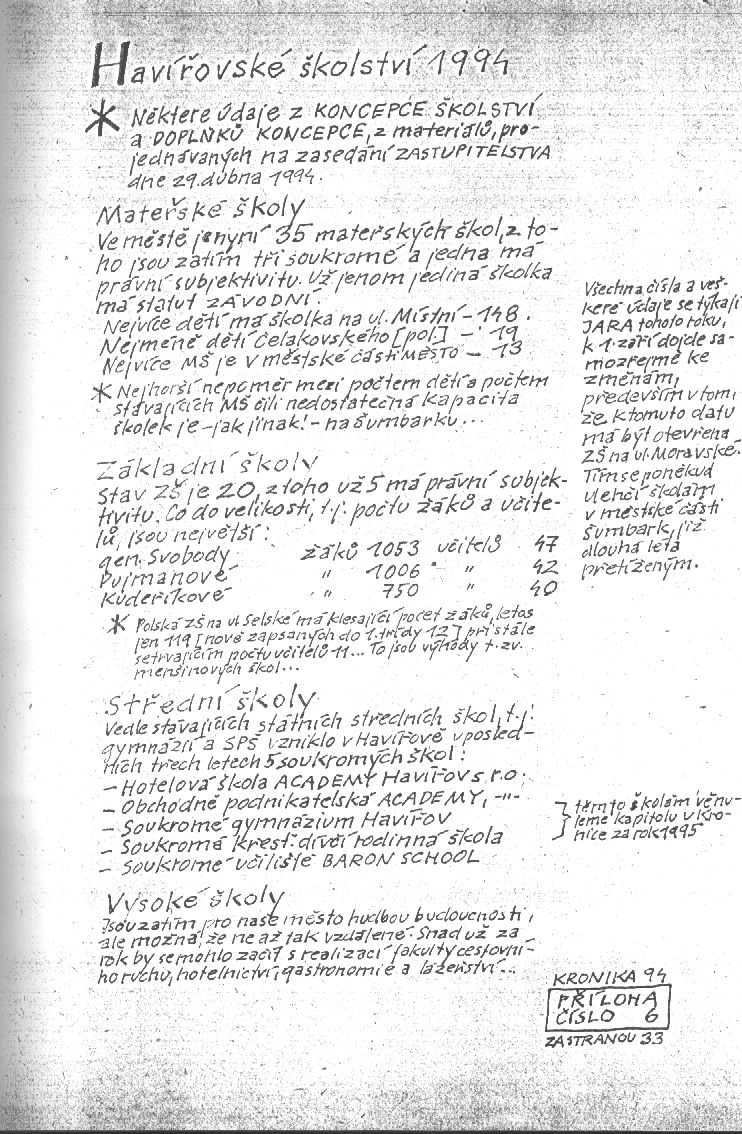 Havířovské školství 1994
* Některé údaje z KONCEPCE ŠKOLSTVÍ
a DOPLŇKŮ KONCEPCE, z materiálů, pro-
jednávaných na zasedání ZASTUPITELSTVA
dne 29. dubna 1994.
Mateřské školy
Ve městě je nyní 35 mateřských škol, z to-
ho jsou zatím tři soukromé a jedna má
právní subjektivitu. Už jenom jediná školka
má statut ZÁVODNÍ.
Nejvíce dětí má školka na ul. Místní – 148.
Nejméně dětí Čelakovského [pol] – 19
Nejvíce MŠ je v městské části MĚSTO – 13
* Nejhorší nepoměr mezi počtem dětí a počtem
stávajících MŠ čili nedostatečná kapacita
školek je – jak jinak! – na Šumbarku...
Základní školy
Stav ZŠ je 20, z toho už 5 má právní subjek-
tivitu. Co do velikosti, t.j. počtu žáků a učite-
lů, jsou největší:
gen. Svobody žáků 1053 učitelů 47
Pujmanové " 1006 " 42
Kudeříkové " 750 " 40
* Polská ZŠ na ul Selské má klesající počet žáků, letos
jen 119 [nově zapsaných do 1. třídy 12] při stále
setrvajícím počtu učitelů 11... To jsou výhody t. zv.
menšinových škol...
Střední školy
Vedle stávajících státních středních škol, t.j.
gymnázií a SPŠ vzniklo v Havířově v posled-
ních třech letech 5 soukromých škol:
– Hotelová škola ACADEMY Havířov s.r.o.
– Obchodně podnikatelská ACADEMY, -"-
– Soukromé gymnázium Havířov
– Soukromá křesť. dívčí rodinná škola
– Soukromé učiliště BARON SCHOOL
Vysoké školy
Jsou zatím pro naše město hudbou budoucnosti,
ale možná, že ne až tak vzdálené. Snad už za
rok by se mohlo začít s realizací fakulty cestovní-
ho ruchu, hotelnictví, gastronomie a lázeňství...
Všechna čísla a veš-
keré údaje se týkají
JARA tohoto roku,
k 1. září dojde sa-
mozřejmě ke
změnám,
především v tom,
že k tomuto datu
má být otevřena
ZŠ na ul. Moravské.
Tím se poněkud
ulehčí školám
v městské části
Šumbark, již
dlouhá léta
přetíženým.
těmto školám věnu-
jeme kapitolu v kro-
nice za rok 1995
KRONIKA 94
PŘÍLOHA
ČÍSLO 6
ZA STRANOU 33